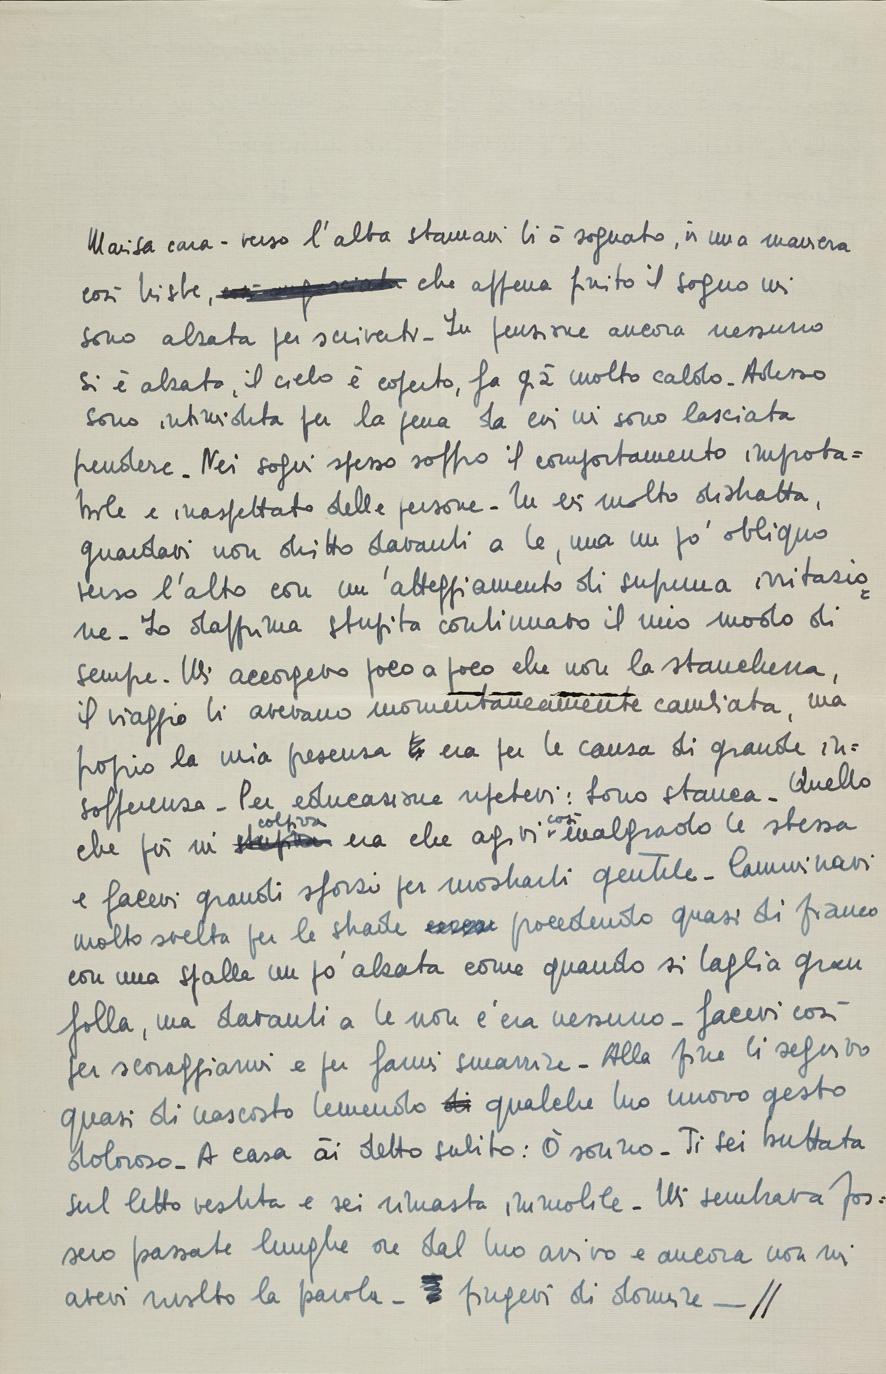 Marisa cara - verso l'alba stamani ti ò sognato, in una maniera
così triste, così angosciata che appena finito il sogno mi
sono alzata per scriverti - In pensione ancora nessuno
si è alzato, il cielo è coperto, fa già molto caldo - Adesso
sono intimidita per la pena da cui mi sono lasciata
prendere - Nei sogni spesso soffro il comportamento improba=
bile e inaspettato delle persone - Tu eri molto distratta,
guardavi non diritto davanti a te, ma un po' obliquo
verso l'alto con un'atteggiamento di suprema irritazio=
ne - Io dapprima stupita continuavo il mio modo di
sempre - Mi accorgevo poco a poco che non la stanchezza,
il viaggio ti avevano momentaneamente cambiata, ma
proprio la mia presenza era per te causa di grande in=
sofferenza - Per educazione ripetevi: Sono stanca - Quello
che più mi stupiva colpiva era che agivi così malgrado te stessa
e facevi grandi sforzi per mostrarti gentile - Camminavi
molto svelta per le strade procedendo quasi di fianco
con una spalla un po' alzata come quando si taglia gran
folla, ma davanti a te non c'era nessuno - facevi così
per scoraggiarmi e per farmi smarrire - Alla fine ti seguivo
quasi di nascosto temendo di qualche tuo nuovo gesto
doloroso - A casa ài detto subito: Ò sonno - Ti sei buttata
sul letto vestita e sei rimasta immobile - Mi sembrava fos=
sero passate lunghe ore dal tuo arrivo e ancora non mi
avevi rivolto la parola - fingevi di dormire — //